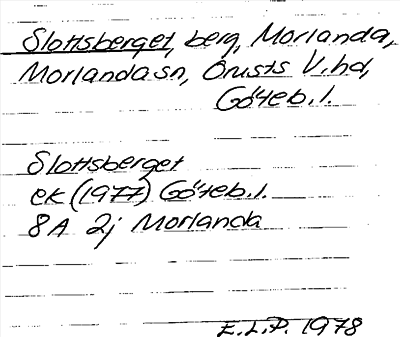 Slottsberget, berg, Morlanda,
Morlanda sn, Orusts V. hd,
Göteb. l.
Slottsberget
ek (1977) Göteb. l.
8A 2j Morlanda
E.L.P. 1978